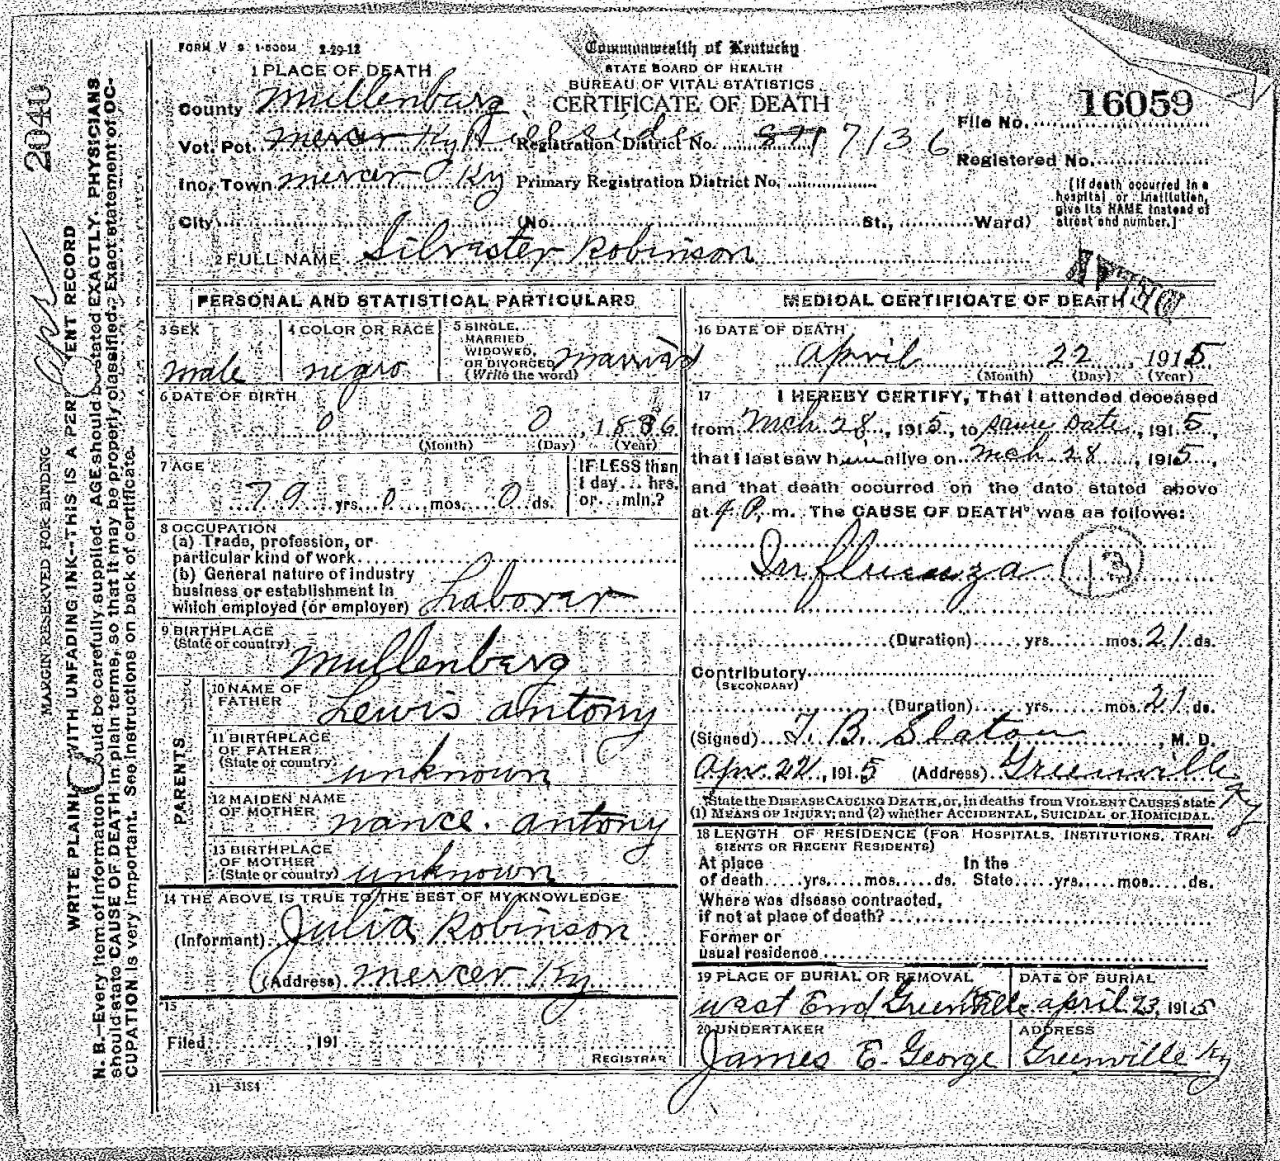 FORM V S 1-500M 2-29-12
Commonwealth of Kentucky
STATE BOARD OF HEALTH
BUREAU OF VITAL STATISTICS
CERTIFICATE OF DEATH
1 PLACE OF DEATH
County Mullenberg
Vot. Pct. mercer Ky Registration District No. 7136
Inc. Town mercer Ky Primary Registration District No.
City (No. St., Ward)
File No. 16059
Registered No.
[If death occurred in a hospital or institution, give its NAME instead of street and number.]
2 FULL NAME Silvester Robinson
DELAY
PERSONAL AND STATISTICAL PARTICULARS
3 SEX male
4 COLOR OR RACE negro
5 SINGLE, MARRIED, WIDOWED, OR DIVORCED (Write the word) married
6 DATE OF BIRTH 0 0, 1836
(Month) (Day) (Year)
7 AGE 79 yrs. 0 mos. 0 ds.
IF LESS than 1 day ... hrs. or ... min.?
8 OCCUPATION
(a) Trade, profession, or
particular kind of work
(b) General nature of industry
business or establishment in
which employed (or employer) Laborar
9 BIRTHPLACE
(State or country) Mullenberg
PARENTS
10 NAME OF FATHER Lewis antony
11 BIRTHPLACE OF FATHER (State or country) unknown
12 MAIDEN NAME OF MOTHER nance. antony
13 BIRTHPLACE OF MOTHER (State or country) unknown
14 THE ABOVE IS TRUE TO THE BEST OF MY KNOWLEDGE
(Informant) Julia Robinson
(Address) mercer Ky
15
Filed , 191
REGISTRAR
11-3184
MEDICAL CERTIFICATE OF DEATH
16 DATE OF DEATH
April 22, 1915
(Month) (Day) (Year)
17 I HEREBY CERTIFY, That I attended deceased
from Mch 28, 1915, to same Date, 1915,
that I last saw h alive on Mch 28, 1915,
and that death occurred on the date stated above
at 4 P. m. The CAUSE OF DEATH* was as follows:
Influenza 13
(Duration) yrs. mos. 21 ds.
Contributory
(SECONDARY)
(Duration) yrs. mos. 21 ds.
(Signed) T. B. Slaton, M. D.
Apr. 22, 1915 (Address) Greenville Ky
*State the DISEASE CAUSING DEATH, or, in deaths from VIOLENT CAUSES state
(1) MEANS OF INJURY; and (2) whether ACCIDENTAL, SUICIDAL or HOMICIDAL.
18 LENGTH OF RESIDENCE (FOR HOSPITALS, INSTITUTIONS, TRAN-
SIENTS OR RECENT RESIDENTS)
At place of death yrs. mos. ds. In the State yrs. mos. ds.
Where was disease contracted,
if not at place of death?
Former or
usual residence
19 PLACE OF BURIAL OR REMOVAL West End Greenville
DATE OF BURIAL april 23, 1915
20 UNDERTAKER James E. George
ADDRESS Greenville Ky
2040
MARGIN RESERVED FOR BINDING
WRITE PLAINLY WITH UNFADING INK--THIS IS A PERMANENT RECORD
N. B.--Every item of information should be carefully supplied. AGE should be stated EXACTLY. PHYSICIANS
should state CAUSE OF DEATH in plain terms, so that it may be properly classified. Exact statement of OC-
CUPATION is very important. See instructions on back of certificate.